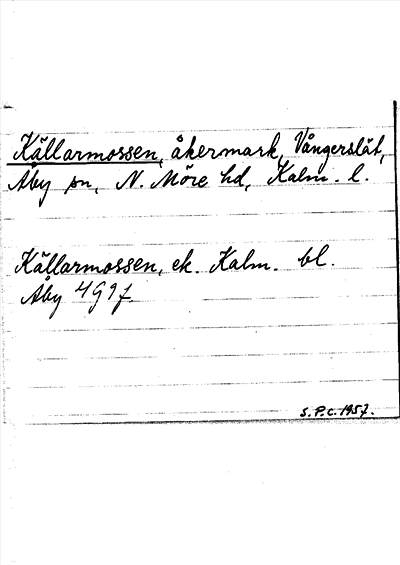 Källarmossen, åkermark, Vångerslät,
Åby sn, N. Möre hd, Kalm. l.
Källarmossen, ek. Kalm. bl.
Åby 4G9f.
S.P.C. 1957.